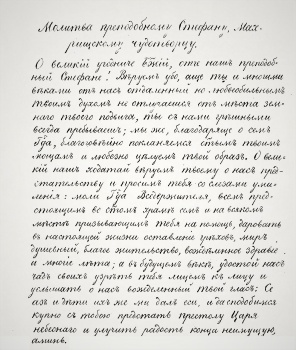 Молитва преподобному Стефану, Мах-
рищскому чудотворцу.
О великій угодниче Бжій, отче нашъ преподоб-
ный Стефане! Вѣруемъ убо, аще ты и многими
вѣками отъ насъ отдаленный но любвеобильнымъ
твоимъ духомъ не отлучаешися отъ мѣста зем-
наго твоего подвига, ты съ нами грѣшными
всегда пребываеши; мы же, благодаряще о семъ
Гда, благоговѣйно покланяемся стымъ твоимъ
мощамъ и любезно цѣлуемъ твой образъ. О вели-
кій нашъ ходатай вѣруемъ твоему о насъ пред-
стательству и просимъ тебя со слезами уми-
ленія: моли Гда Вседержителя, всемъ пред-
стоящимъ во стомъ храмѣ семъ и на всякомъ
мѣстѣ призывающимъ тебя на помощь, даровати
въ настоящей жизни оставленіе грѣховъ, миръ
душевный, благое жительство, вожделѣнное здравіе
и многа лѣта; а въ будущемъ вѣкѣ, удостой насъ
чадъ своихъ узрѣть тебя лицемъ къ лицу и
услышать о насъ вожделѣнный твой гласъ: Се
азъ и дѣти ихъ же ми далъ еси, и да сподобимся
купно съ тобою предстать престолу Царя
небеснаго и улучить радость конца неимущую,
аминь.